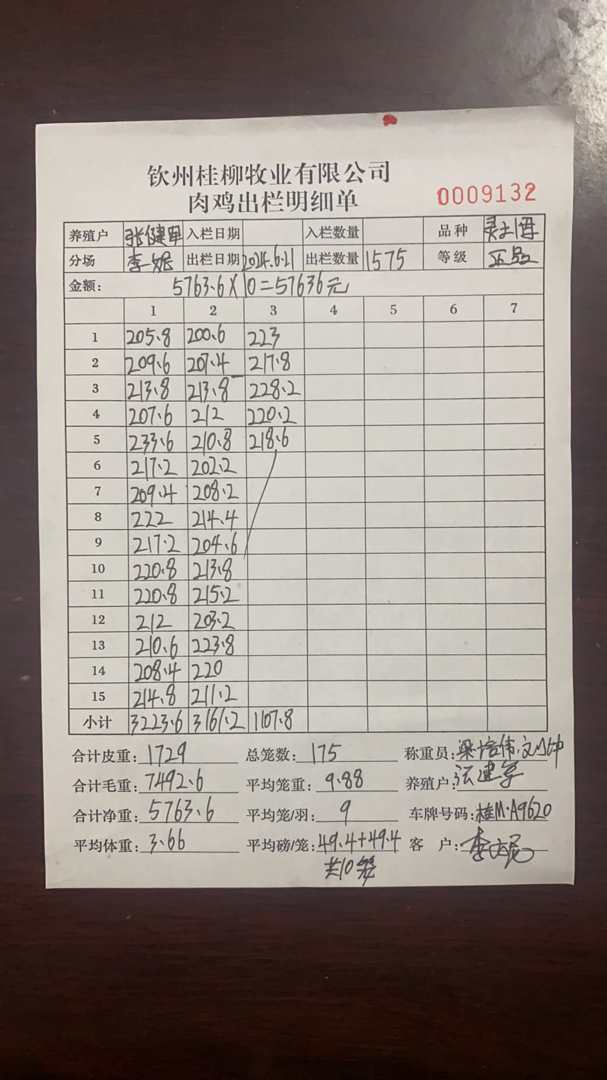 钦州桂柳牧业有限公司
肉鸡出栏明细单 0009132
养殖户 张健 入栏日期 入栏数量 品种 灵
分场 李妮 出栏日期 2024.6.21 出栏数量 1575 等级 正品
金额: 5763.6×10=57636元
1 2 3 4 5 6 7
1 205.8 200.6 223
2 209.6 207.4 217.8
3 213.8 213.8 228.2
4 207.6 212 220.2
5 233.6 210.8 218.6
6 217.2 202.2
7 209.4 208.2
8 222 214.4
9 217.2 204.6
10 220.8 213.8
11 220.8 215.2
12 212 203.2
13 210.6 223.8
14 208.4 220
15 214.8 211.2
小计 3223.6 3161.2 1107.8
合计皮重: 1729 总笼数: 175 称重员: 梁培伟
合计毛重: 7492.6 平均笼重: 9.88 养殖户: 张建
合计净重: 5763.6 平均笼/羽: 9 车牌号码: 桂M·A9620
平均体重: 3.66 平均磅/笼: 49.4+49.4 客 户: 李
共10笼